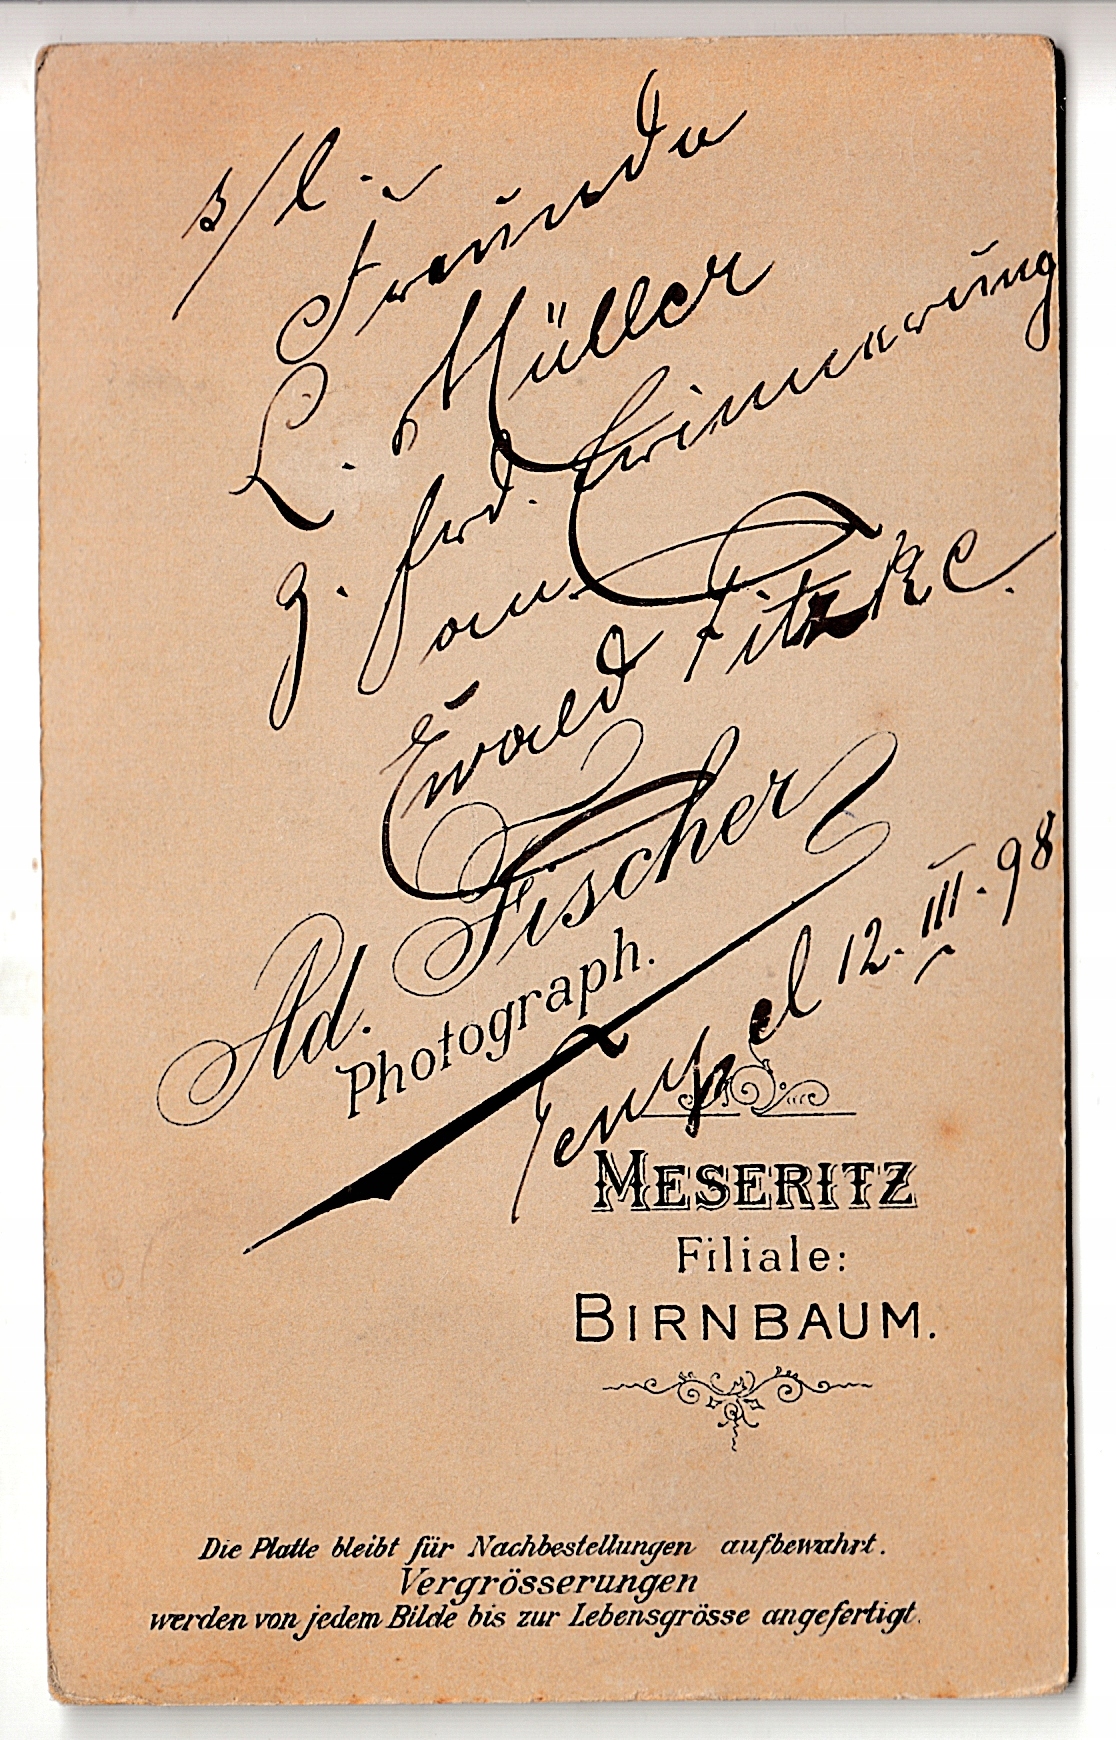 s/l.
Freunde
L. Müller
z. frd. Erinnerung
vom
Ewald Fitzke.
Ad. Fischer
Photograph.
Tempel 12. III. 98
MESERITZ
Filiale:
BIRNBAUM.
Die Platte bleibt für Nachbestellungen aufbewahrt.
Vergrösserungen
werden von jedem Bilde bis zur Lebensgrösse angefertigt.